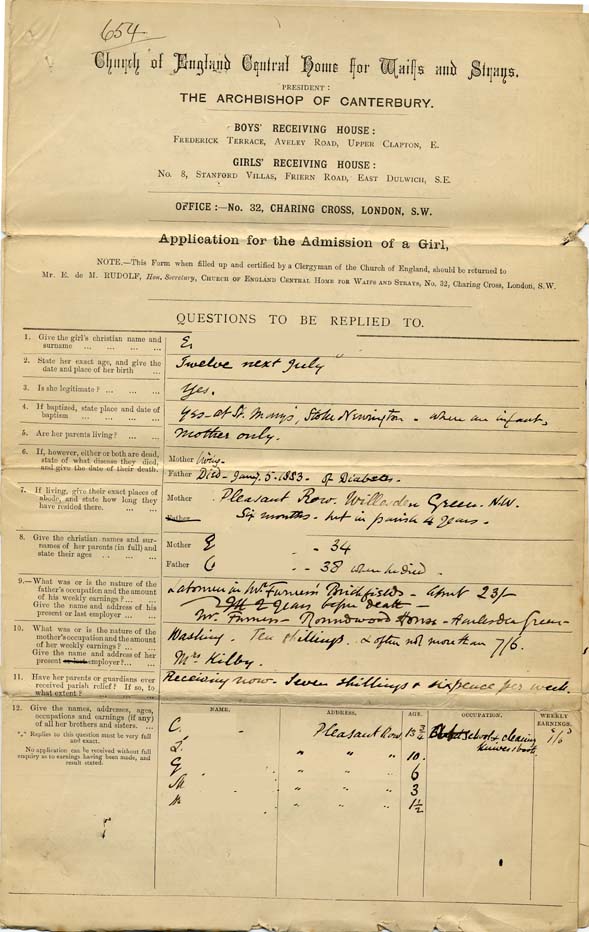 654
Church of England Central Home for Waifs and Strays.
PRESIDENT:
THE ARCHBISHOP OF CANTERBURY.
BOYS' RECEIVING HOUSE:
FREDERICK TERRACE, AVELEY ROAD, UPPER CLAPTON, E.
GIRLS' RECEIVING HOUSE:
No. 8, STANFORD VILLAS, FRIERN ROAD, EAST DULWICH, S.E.
OFFICE:—No. 32, CHARING CROSS, LONDON, S.W.
Application for the Admission of a Girl,
NOTE.—This Form when filled up and certified by a Clergyman of the Church of England, should be returned to
Mr. E. de M. RUDOLF, Hon. Secretary, CHURCH OF ENGLAND CENTRAL HOME FOR WAIFS AND STRAYS, No. 32, Charing Cross, London, S.W.
QUESTIONS TO BE REPLIED TO.
1. Give the girl's christian name and
surname ... ... ... ...
E.
2. State her exact age, and give the
date and place of her birth ...
Twelve next July
3. Is she legitimate? ... ... ...
Yes.
4. If baptized, state place and date of
baptism ... ... ... ...
Yes - at St. Mary's, Stoke Newington - when an infant,
5. Are her parents living? ... ...
Mother only.
6. If, however, either or both are dead,
state of what disease they died,
and give the date of their death.
Mother living.
Father Died - Jany. 5. 1883 - of Diabetes.
7. If living, give their exact places of
abode, and state how long they
have resided there. ... ...
Mother Pleasant Row. Willesden Green. N.W.
Father Six months - but in parish 4 years -
8. Give the christian names and sur-
names of her parents (in full) and
state their ages ... ... ...
Mother E " - 34
Father C " - 38 when he died.
9.—What was or is the nature of the
father's occupation and the amount
of his weekly earnings? ... ...
Give the name and address of his
present or last employer ... ...
Labourer in Mr. Furness' Brickfields - about 23/-
Left 2 years before death -
Mr. Furness - Roundwood House - Harlesden Green -
10. What was or is the nature of the
mother's occupation and the amount
of her weekly earnings? ... ...
Give the name and address of her
present or last employer? ... ...
Washing. Ten shillings. & often not more than 7/6.
Mrs Kilby.
11. Have her parents or guardians ever
received parish relief? If so, to
what extent? ... ... ...
Receiving now - Seven shillings & sixpence per week.
12. Give the names, addresses, ages,
occupations and earnings (if any)
of all her brothers and sisters. ...
*⁎* Replies to this question must be very full
and exact.
No application can be received without full
enquiry as to earnings having been made, and
result stated.
NAME. ADDRESS. AGE. OCCUPATION. WEEKLY EARNINGS.
C. Pleasant Row 13 3/4 school & cleaning knives & boots 1/6
L. " " 10.
G " " 6
" " 3
" " 1½